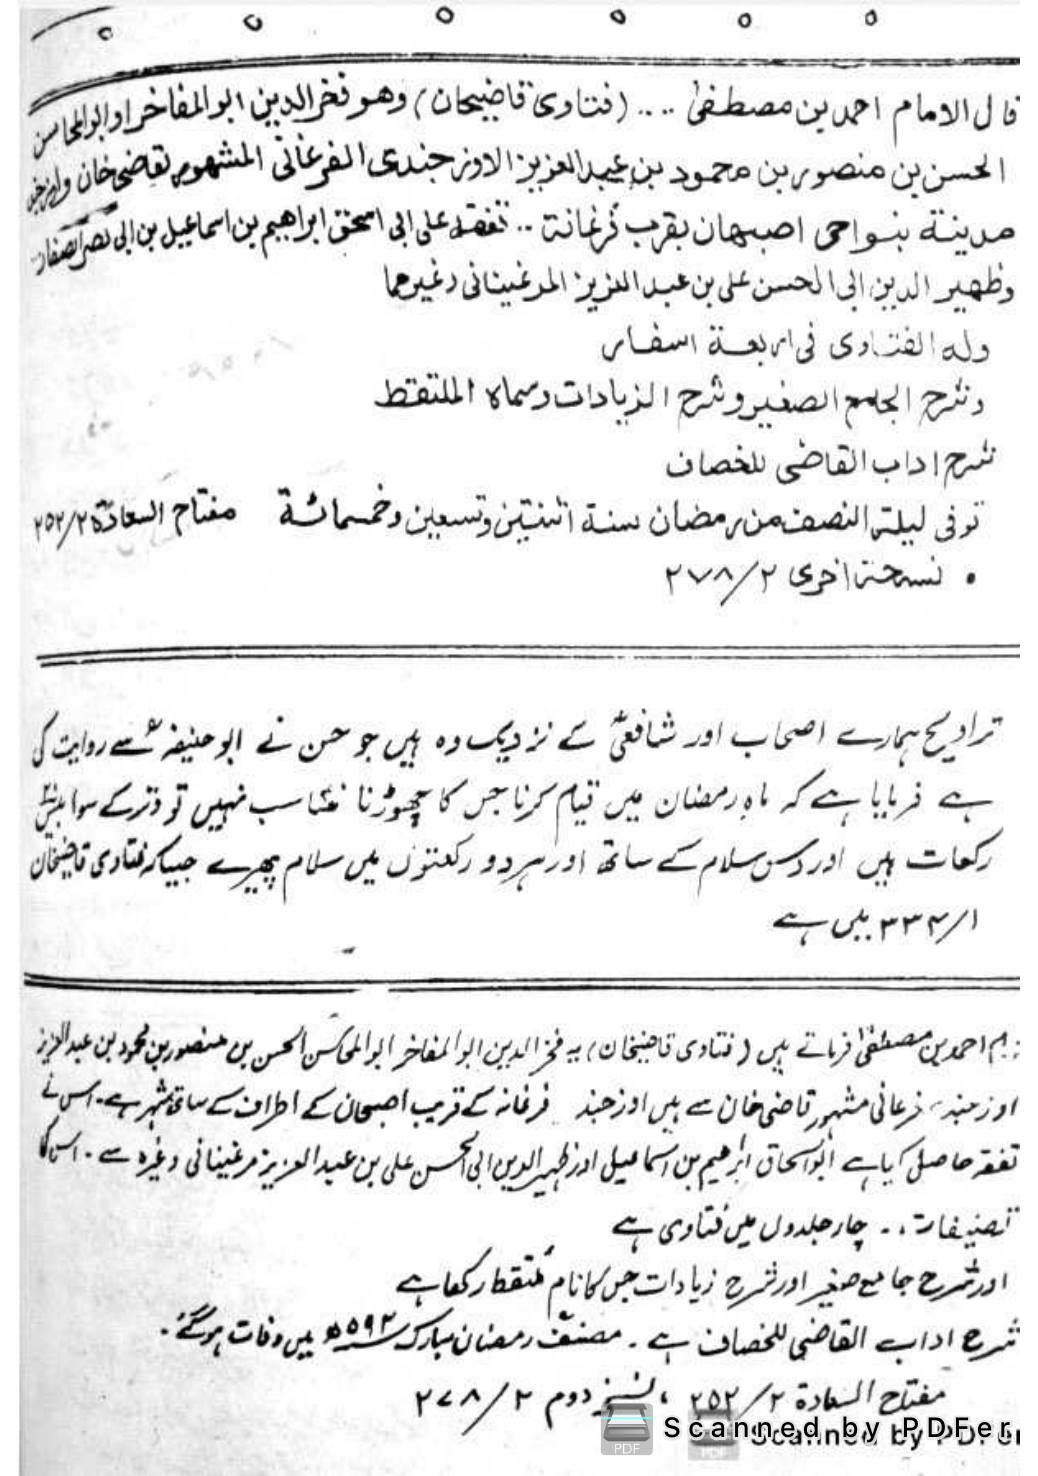 قال الامام احمد بن مصطفیٰ .... (فتاوی قاضیخان) وهو فخر الدین ابو المفاخر او ابو المحاسن
الحسن بن منصور بن محمود بن عبد العزیز الاوزجندی الفرغانی المشهور بقاضی خان
مدینة بنواحی اصبهان بقرب فرغانة .. تفقه علی ابی اسحٰق ابراهیم بن اسماعیل بن ابی نصر الصفار
وظهیر الدین ابی الحسن علی بن عبد العزیز المرغینانی وغیرهما
وله الفتاوی فی اربعة اسفار
وشرح الجامع الصغیر وشرح الزیادات وسماہ الملتقط
شرح اداب القاضی للخصاف
توفی لیلة النصف من رمضان سنة اثنتین وتسعین وخمسمائة مفتاح السعادة ۲۵۲/۲
• نسخة اخری ۲۷۸/۲
تراویح ہمارے اصحاب اور شافعیؒ کے نزدیک وہ ہیں جو حسن نے ابو حنیفہؒ سے روایت کی
ہے فرمایا ہے کہ ماہ رمضان میں قیام کرنا جس کا چھوڑنا مناسب نہیں تو وتر کے سوا بیس
رکعات ہیں اور دس سلام کے ساتھ اور ہر دو رکعتوں میں سلام پھیرے جیسا کہ فتاوی قاضیخان
۱/۲۳۴ میں ہے
احمد بن مصطفیٰ فرماتے ہیں (فتاوی قاضیخان) یہ فخر الدین ابو المفاخر ابو المحاسن الحسن بن منصور بن محمود بن عبد العزیز
اوزجند، فرغانی مشہور قاضی خان سے ہیں اوزجند فرغانہ کے قریب اصبحان کے اطراف کے ساتھ شہر ہے۔ اس نے
تفقہ حاصل کیا ہے ابو اسحاق ابراھیم بن اسماعیل اور ظہیر الدین ابی الحسن علی بن عبد العزیز مرغینانی وغیرہ سے۔ اس کا
تصنیفات .. چار جلدوں میں فتاوی ہے
اور شرح جامع صغیر اور شرح زیادات جس کا نام مُلتقط رکھا ہے
شرح اداب القاضی للخصاف ہے۔ مصنف رمضان مبارک ۵۹۲ھ میں وفات ہوگئے۔
مفتاح السعادة ۲۵۲/۲ ، نسخہ دوم ۲۷۸/۲
Scanned by PDFer
Scanned by PDFer